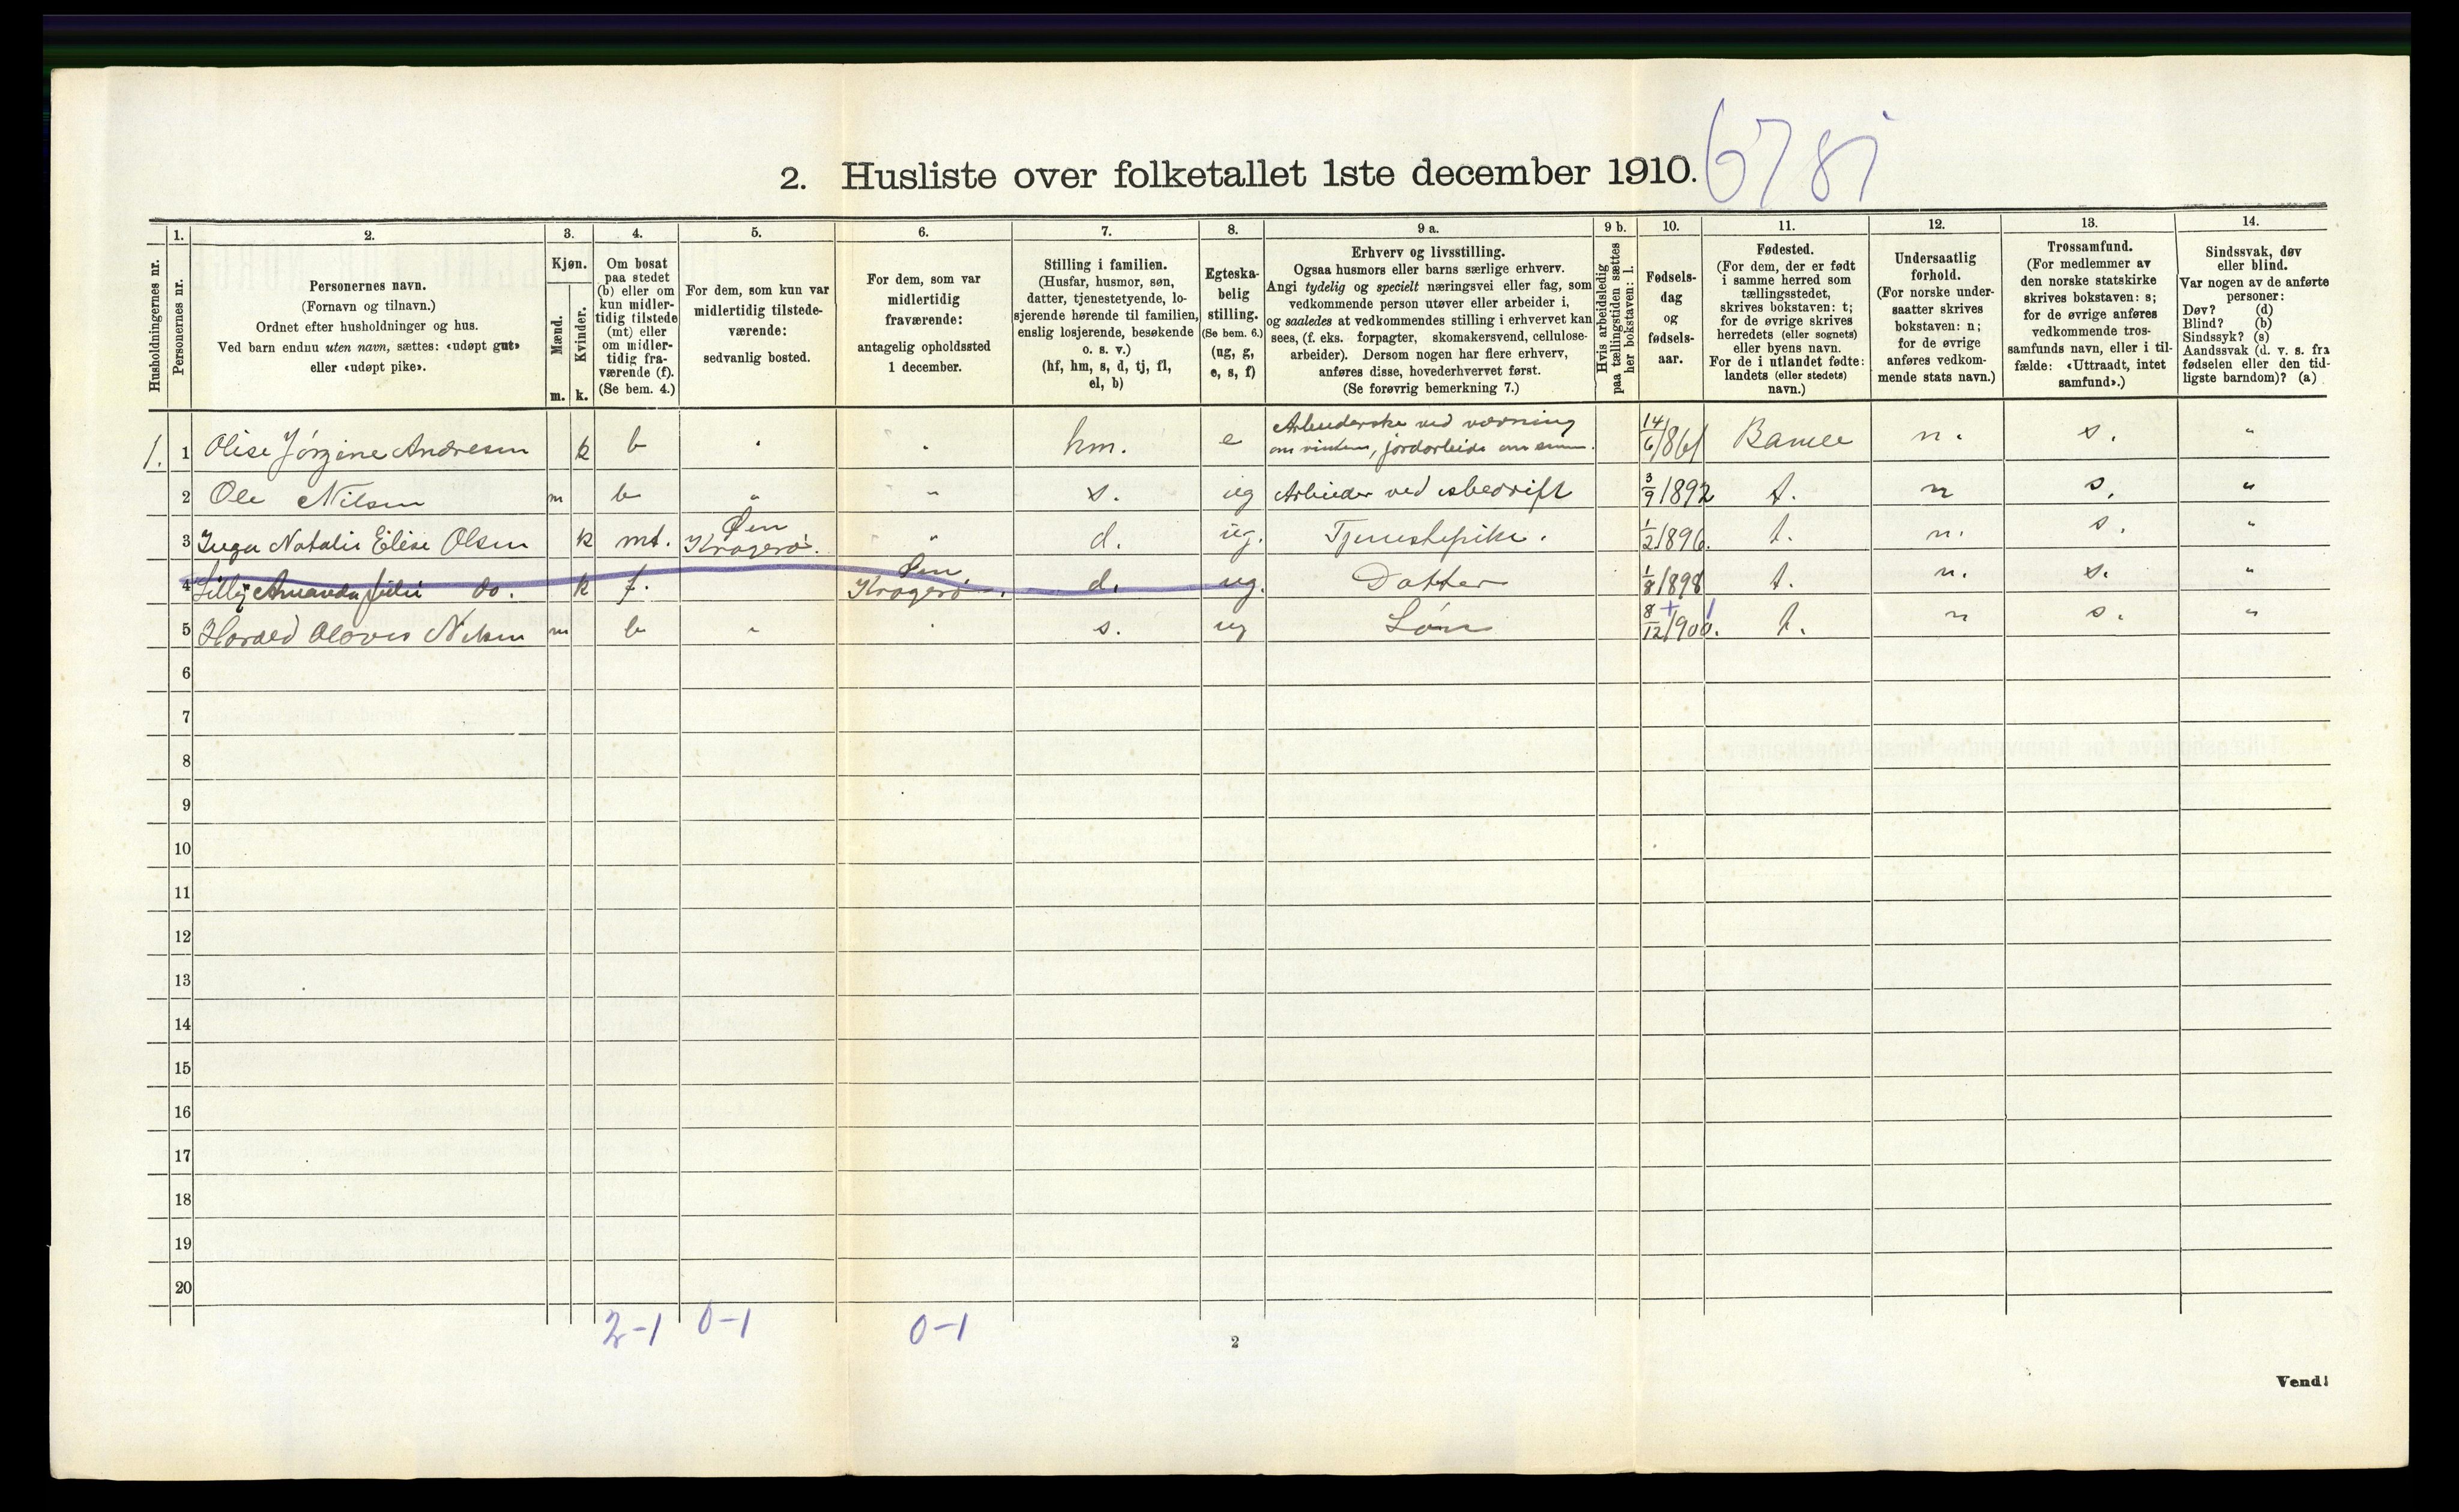 2. Husliste over folketallet 1ste december 1910.
1. 2. 3. 4. 5. 6. 7. 8. 9 a. 9 b. 10. 11. 12. 13. 14.
Husholdningernes nr.
Personernes nr.
Personernes navn.
(Fornavn og tilnavn.)
Ordnet efter husholdninger og hus.
Ved barn endnu uten navn, sættes: «udøpt gut»
eller «udøpt pike».
Kjøn.
Mænd.
Kvinder.
m. k.
Om bosat
paa stedet
(b) eller om
kun midler-
tidig tilstede
(mt) eller
om midler-
tidig fra-
værende (f).
(Se bem. 4.)
For dem, som kun var
midlertidig tilstede-
værende:
sedvanlig bosted.
For dem, som var
midlertidig
fraværende:
antagelig opholdssted
1 december.
Stilling i familien.
(Husfar, husmor, søn,
datter, tjenestetyende, lo-
sjerende hørende til familien,
enslig losjerende, besøkende
o. s. v.)
(hf, hm, s, d, tj, fl,
el, b)
Egteska-
belig
stilling.
(Se bem. 6.)
(ug, g,
e, s, f)
Erhverv og livsstilling.
Ogsaa husmors eller barns særlige erhverv.
Angi tydelig og specielt næringsvei eller fag, som
vedkommende person utøver eller arbeider i,
og saaledes at vedkommendes stilling i erhvervet kan
sees, (f. eks. forpagter, skomakersvend, cellulose-
arbeider). Dersom nogen har flere erhverv,
anføres disse, hovederhvervet først.
(Se forøvrig bemerkning 7.)
Hvis arbeidsledig
paa tællingstiden sættes
her bokstaven: l.
Fødsels-
dag
og
fødsels-
aar.
Fødested.
(For dem, der er født
i samme herred som
tællingsstedet,
skrives bokstaven: t;
for de øvrige skrives
herredets (eller sognets)
eller byens navn.
For de i utlandet fødte:
landets (eller stedets)
navn.)
Undersaatlig
forhold.
(For norske under-
saatter skrives
bokstaven: n;
for de øvrige
anføres vedkom-
mende stats navn.)
Trossamfund.
(For medlemmer av
den norske statskirke
skrives bokstaven: s;
for de øvrige anføres
vedkommende tros-
samfunds navn, eller i til-
fælde: «Uttraadt, intet
samfund».)
Sindssvak, døv
eller blind.
Var nogen av de anførte
personer:
Døv? (d)
Blind? (b)
Sindssyk? (s)
Aandssvak (d. v. s. fra
fødselen eller den tid-
ligste barndom)? (a)
1. 1 Olise Jørgine Andresen k b " " hm. e Arbeiderske ved 14/6 1861 Bamle n. s. "
om vinteren, jordarbeide om
2 Ole Nilsen m b " " s. ug Arbeider ved isbedrift 3/9 1892 t. n s. "
3 Inga Natalie Elise Olsen k mt. Øen Kragerø. " d. ug. Tjenestepike. 1/2 1896. t. n. s. "
4 Lilly Amanda Julie do. k f. Øen Kragerø. d. ug. Datter 1/8 1898 t. n. s. "
5 Harald Olaves Nilsen m b " " s. ug Søn 8/12 1900. t. n s. "
6
7
8
9
10
11
12
13
14
15
16
17
18
19
20
2-1 0-1 0-1
2
Vend!